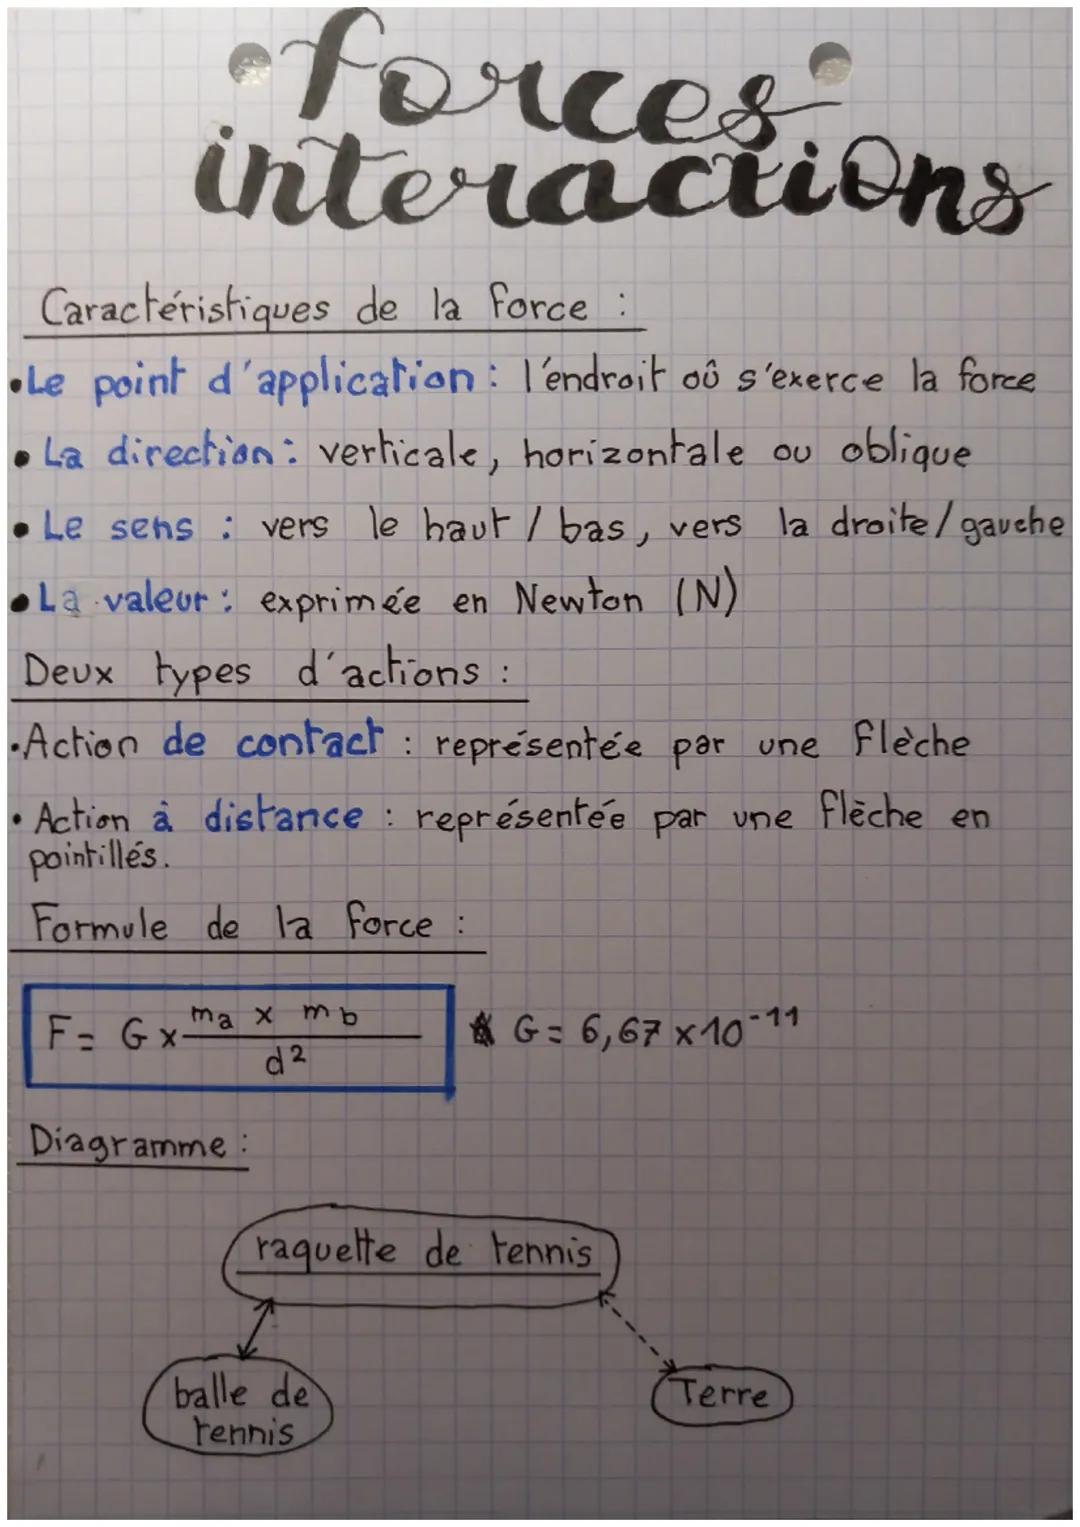 forces
interactions
Caractéristiques de la force :
•Le point d'application : l'endroit où s'exerce la force
• La direction : verticale, horizontale ou oblique
• Le sens : vers le haut / bas, vers la droite / gauche
• La valeur : exprimée en Newton (N)
Deux types d'actions :
•Action de contact : représentée par une flèche
• Action à distance : représentée par une flèche en
pointillés.
Formule de la force :
F = G × ma × mb / d²
* G = 6,67 × 10⁻¹¹
Diagramme :
raquette de tennis
balle de
tennis
Terre